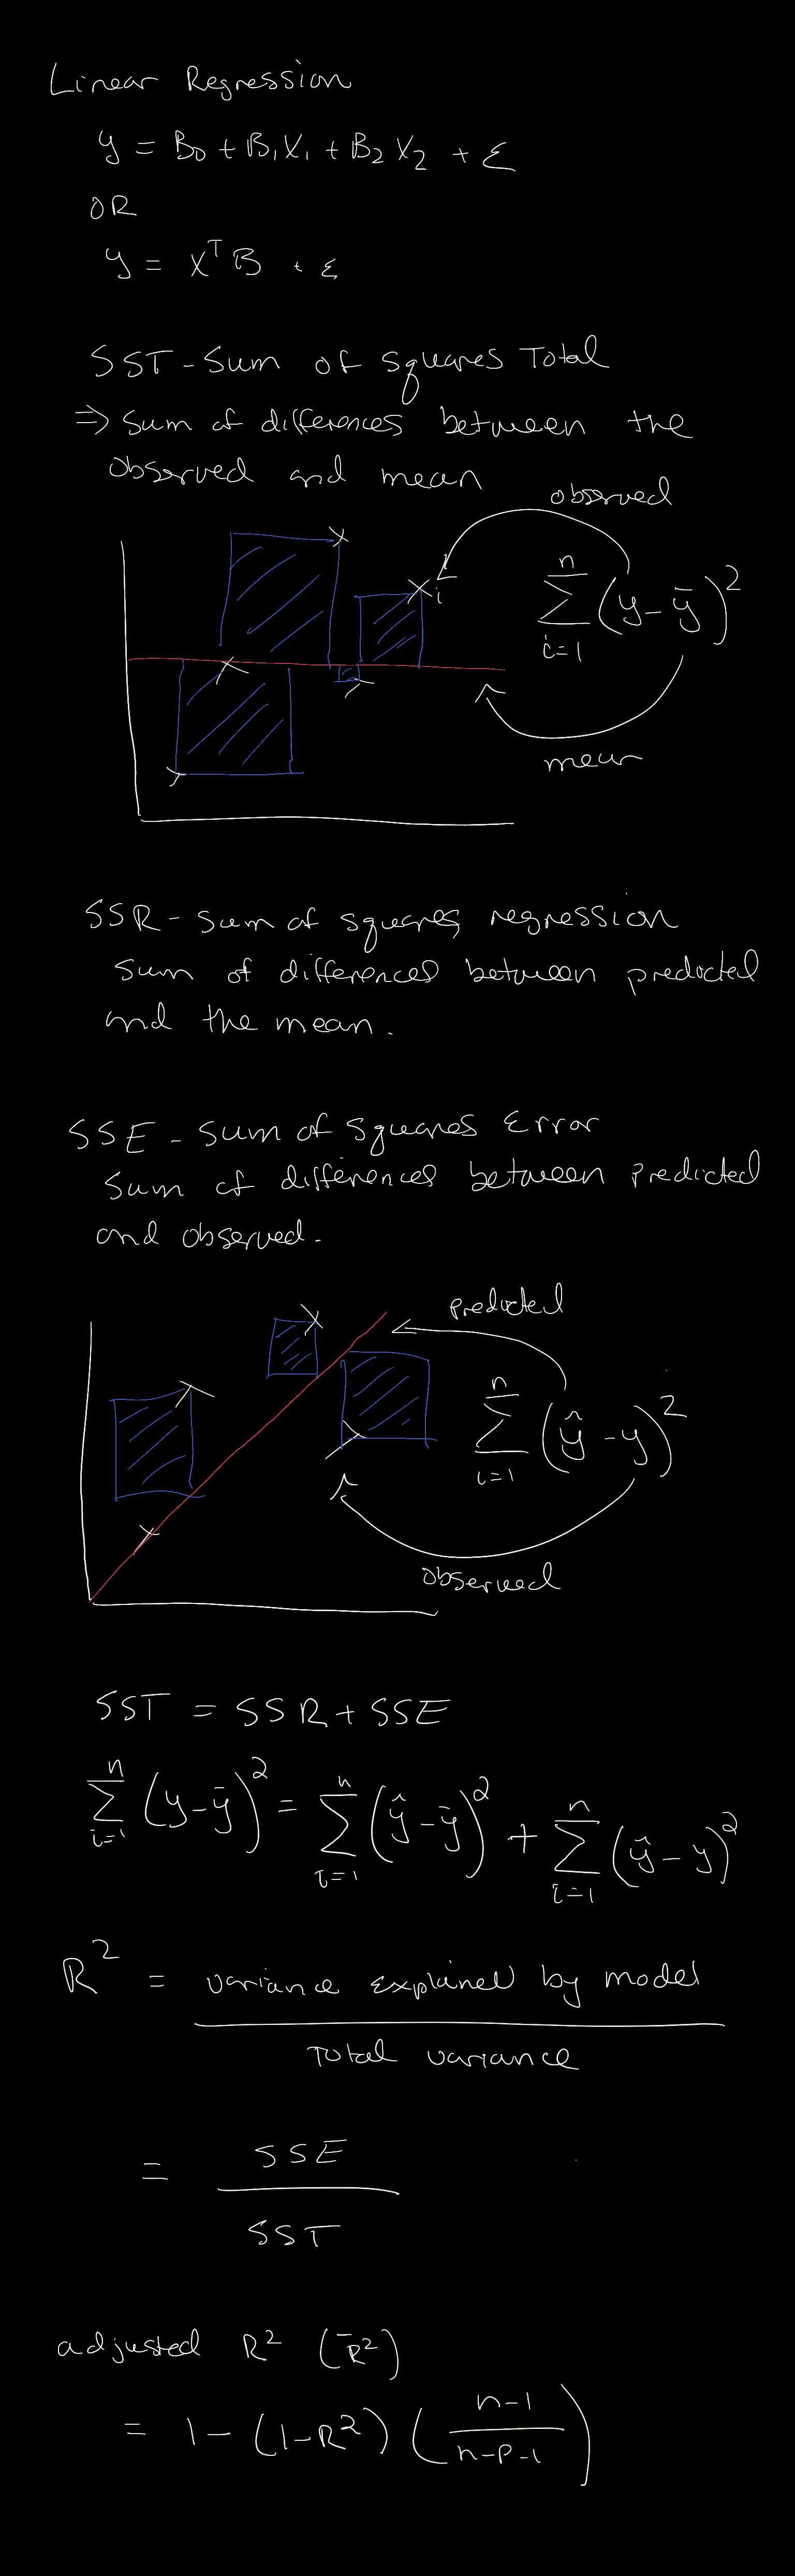 Linear Regression
y = B₀ + B₁X₁ + B₂X₂ + ε
OR
y = XᵀB + ε
SST - Sum of squares Total
⇒ Sum of differences between the
observed and mean
observed
i
∑ᵢ₌₁ⁿ (y - ȳ)²
mean
SSR - sum of squares regression
sum of differences between predicted
and the mean.
SSE - sum of squares Error
sum of differences between predicted
and observed.
predicted
∑ᵢ₌₁ⁿ (ŷ - y)²
observed
SST = SSR + SSE
∑ᵢ₌₁ⁿ (y - ȳ)² = ∑ᵢ₌₁ⁿ (ŷ - ȳ)² + ∑ᵢ₌₁ⁿ (ŷ - y)²
R² = variance explained by model
Total variance
= SSE
SST
adjusted R² (R̄²)
= 1 - (1 - R²) (n-1
n-p-1)